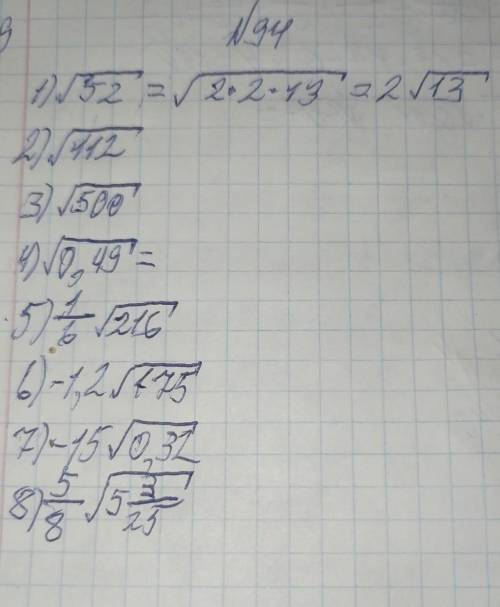 №94
1) √52 = √2·2·13 = 2√13
2) √112
3) √500
4) √0,49 =
5) 1/6 √216
6) -1,2√175
7) -15√0,32
8) 5/8 √5 3/25